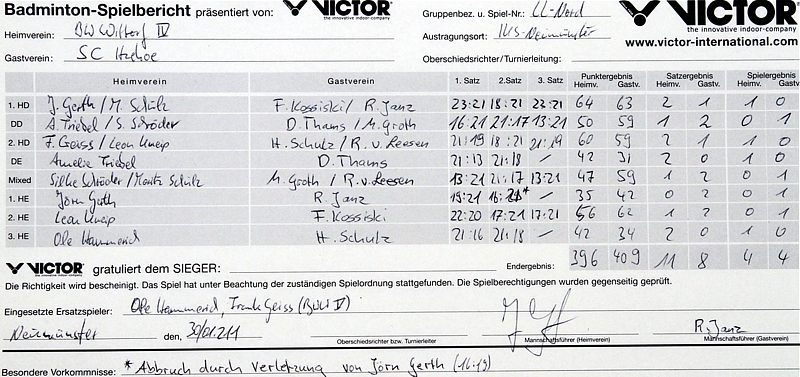 Badminton-Spielbericht präsentiert von: VICTOR the innovative indoor-company Gruppenbez. u. Spiel-Nr.: LL-Nord VICTOR the innovative indoor-company
Heimverein: BW Wittorf IV Austragungsort: IKS-Neumünster www.victor-international.com
Gastverein: SC Itzehoe Oberschiedsrichter/Turnierleitung:
Heimverein Gastverein 1. Satz 2.Satz 3. Satz Punktergebnis Heimv. Gastv. Satzergebnis Heimv. Gastv. Spielergebnis Heimv. Gastv.
1. HD J. Gerth/M. Schülz F. Kossiski/R. Janz 23:21 18:21 23:21 64 63 2 1 1 0
DD A. Triebel/S. Schröder D. Thams/M. Groth 16:21 21:17 13:21 50 59 1 2 0 1
2. HD F. Geiss/Leon Kneip H. Schulz/R. v. Leesen 21:19 18:21 21:19 60 59 2 1 1 0
DE Amelie Triebel D. Thams 21:13 21:18 / 42 31 2 0 1 0
Mixed Silke Schröder/Moritz Schülz M. Groth/R. v. Leesen 13:21 21:17 13:21 47 59 1 2 0 1
1. HE Jörn Gerth R. Janz 19:21 16:21* 35 42 0 2 0 1
2. HE Leon Kneip F. Kossiski 22:20 17:21 17:21 56 62 1 2 0 1
3. HE Ole Hammerid H. Schulz 21:16 21:18 / 42 34 2 0 1 0
VICTOR the innovative indoor-company gratuliert dem SIEGER: Endergebnis: 396 409 11 8 4 4
Die Richtigkeit wird bescheinigt. Das Spiel hat unter Beachtung der zuständigen Spielordnung stattgefunden. Die Spielberechtigungen wurden gegenseitig geprüft.
Eingesetzte Ersatzspieler: Ole Hammerid, Frank Geiss (BWW V)
Neumünster den, 30/01.211 R. Janz
Oberschiedsrichter bzw. Turnierleiter Mannschaftsführer (Heimverein) Mannschaftsführer (Gastverein)
Besondere Vorkommnisse: * Abbruch durch Verletzung von Jörn Gerth (16:19)